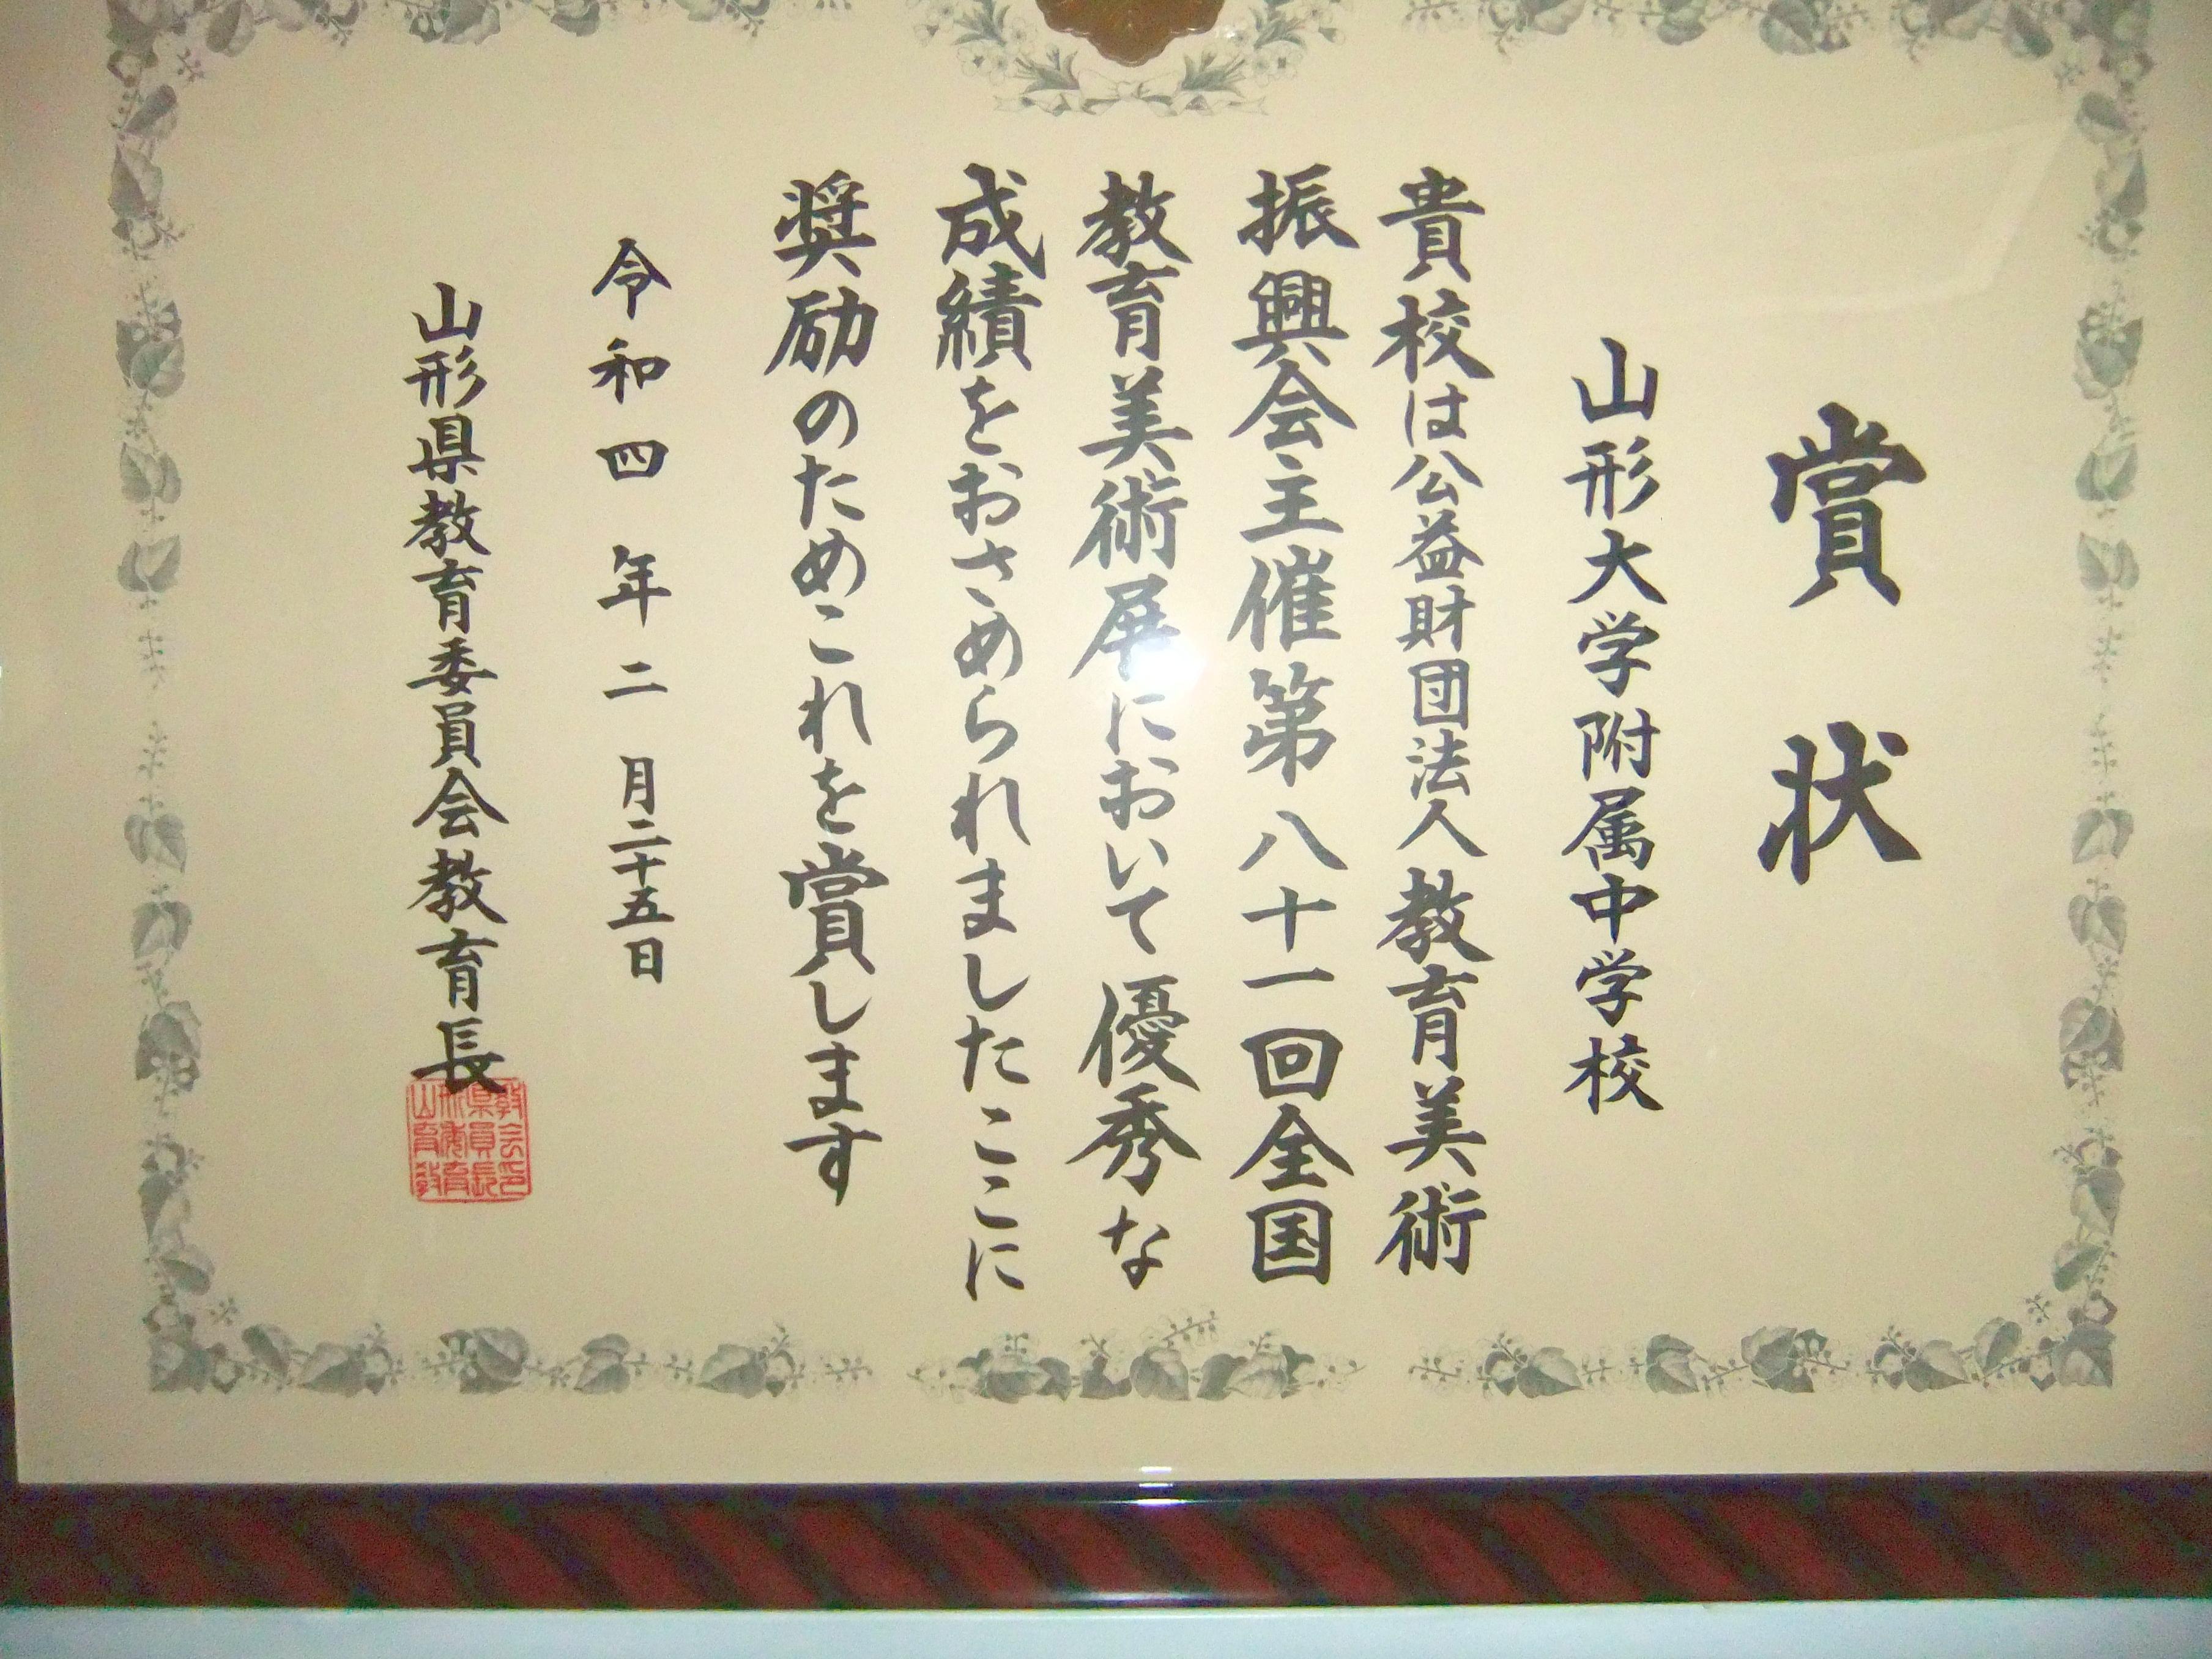 賞状
山形大学附属中学校
貴校は公益財団法人教育美術
振興会主催第八十一回全国
教育美術展において優秀な
成績をおさめられましたここに
奨励のためこれを賞します
令和四年二月二十五日
山形県教育委員会教育長